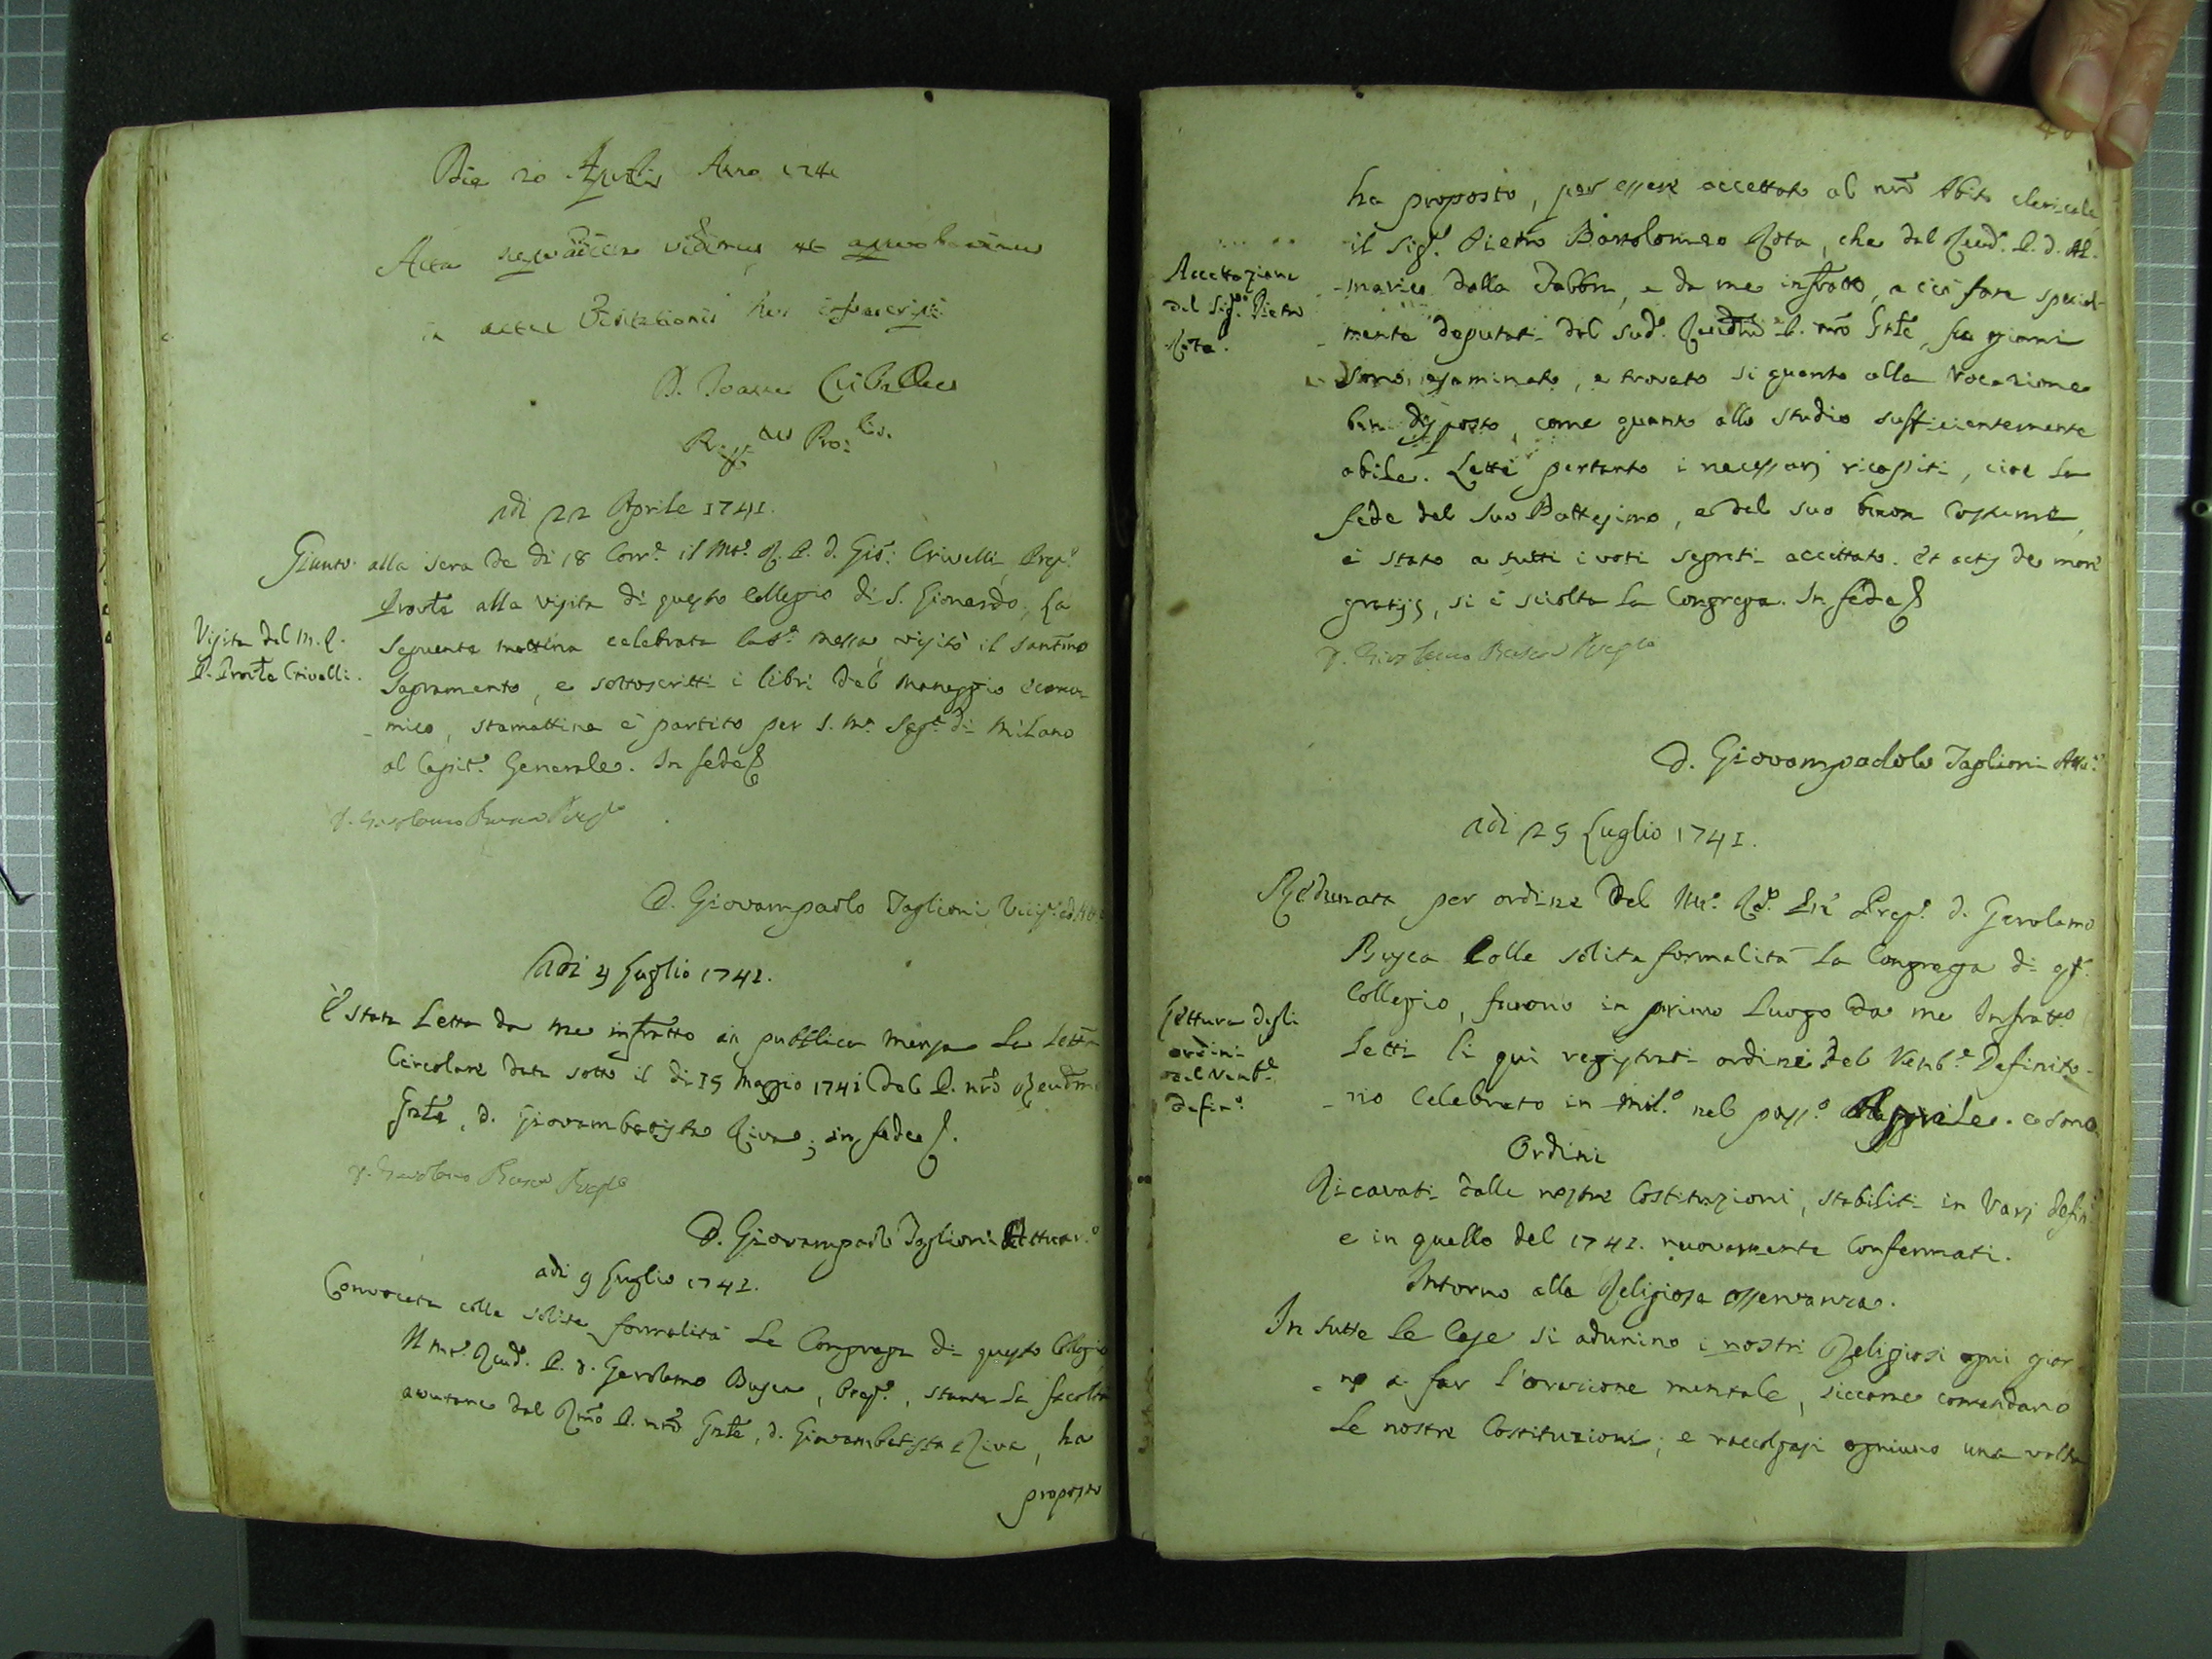 Die 20 Aprilis Anno 1741
Acta vidimus et approbavimus
in actu Visitationis nos infrascripti
D. Joannes Cribellus
Præp.tus Pro:lis.
adi 22 Aprile 1741.
Giunto alla sera de di 18 Corr.e il M.to R. P. d. Gio: Crivelli Prep.o
Prov̄le alla visita di questo Collegio di S. Gionardo, la
Visita del M. R.
P. Prov̄le Crivelli.
seguente mattina celebrata la S.a Messa, visitò il Santmo
Sagramento, e sottoscritti i libri del maneggio econo-
-mico, stamattina è partito per S. M.a Seg.ta di Milano
al Capit.o Generale. In fede
D. Gerolamo Busca Prep.to
D. Giovampaolo Taglioni
Adi 4 Luglio 1741.
È stata Letta da me infratto in pubblica mensa La Lett̄a
Circolare data sotto il di 15 Maggio 1741 del P. nrō Reudmo
Gnle, d. Giovambatista Riva; in fede.
D. Gerolamo Busca Prep.to
D. Giovampaolo Taglioni Attuar.o
adi 9 Luglio 1741.
Convocata colle solite formalità La Congrega di questo Collegio
Il M.to Reud.o P. d. Gerolamo Busca, Prep.o, stante la facoltà
avutane dal Rmo P. nrō Gnle, d. Giovambatista Riva, ha
proposto
ha proposto, per essere accettato al nrō Abito clericale
il Sig.r Pietro Bartolomeo Rota, che dal Reud.o P. d. Al-
Accettazione
del Sig.r Pietro
Rota.
-marico dalla Fabbra, e da me infratto, a ciò fare special-
mente deputati dal sud.o P. nrō Gnle, fu giorni
sono, esaminato, e trovato si quanto alla vocazione
ben disposto, come quanto allo studio sufficientemente
abile. Letti pertanto i necessarj ricapiti, cioè la
fede del suo Battesimo, e del suo buon costume,
è stato a tutti i voti segreti accettato. Et actis de more
gratijs, si è sciolta la Congrega. In fede
D. Gerolamo Busca Prep.to
D. Giovampaolo Taglioni Att.o
adi 25 Luglio 1741.
Radunata per ordine del M.to Rd.o Prep.o d. Gerolamo
Busca colle solite formalità la Congrega di qs.o
Collegio, furono in primo luogo da me Infratto
Lettura degli
ordini
del Venb.e
Defin.o
Letti li qui registrati ordini del Venb.e Definito-
-rio celebrato in Mil.o nel pass.o Aprile. e sono
Ordini
Ricavati dalle nostre Costituzioni, stabiliti in varj defin.i
e in quello del 1741. nuovamente confermati.
Intorno alla Religiosa osservanza.
In tutte le Case si adunino i nostri Religiosi ogni gior
-no a far l'orazione mentale, siccome comandano
Le nostre Costituzioni; e raccolgasi ogniuno una volta